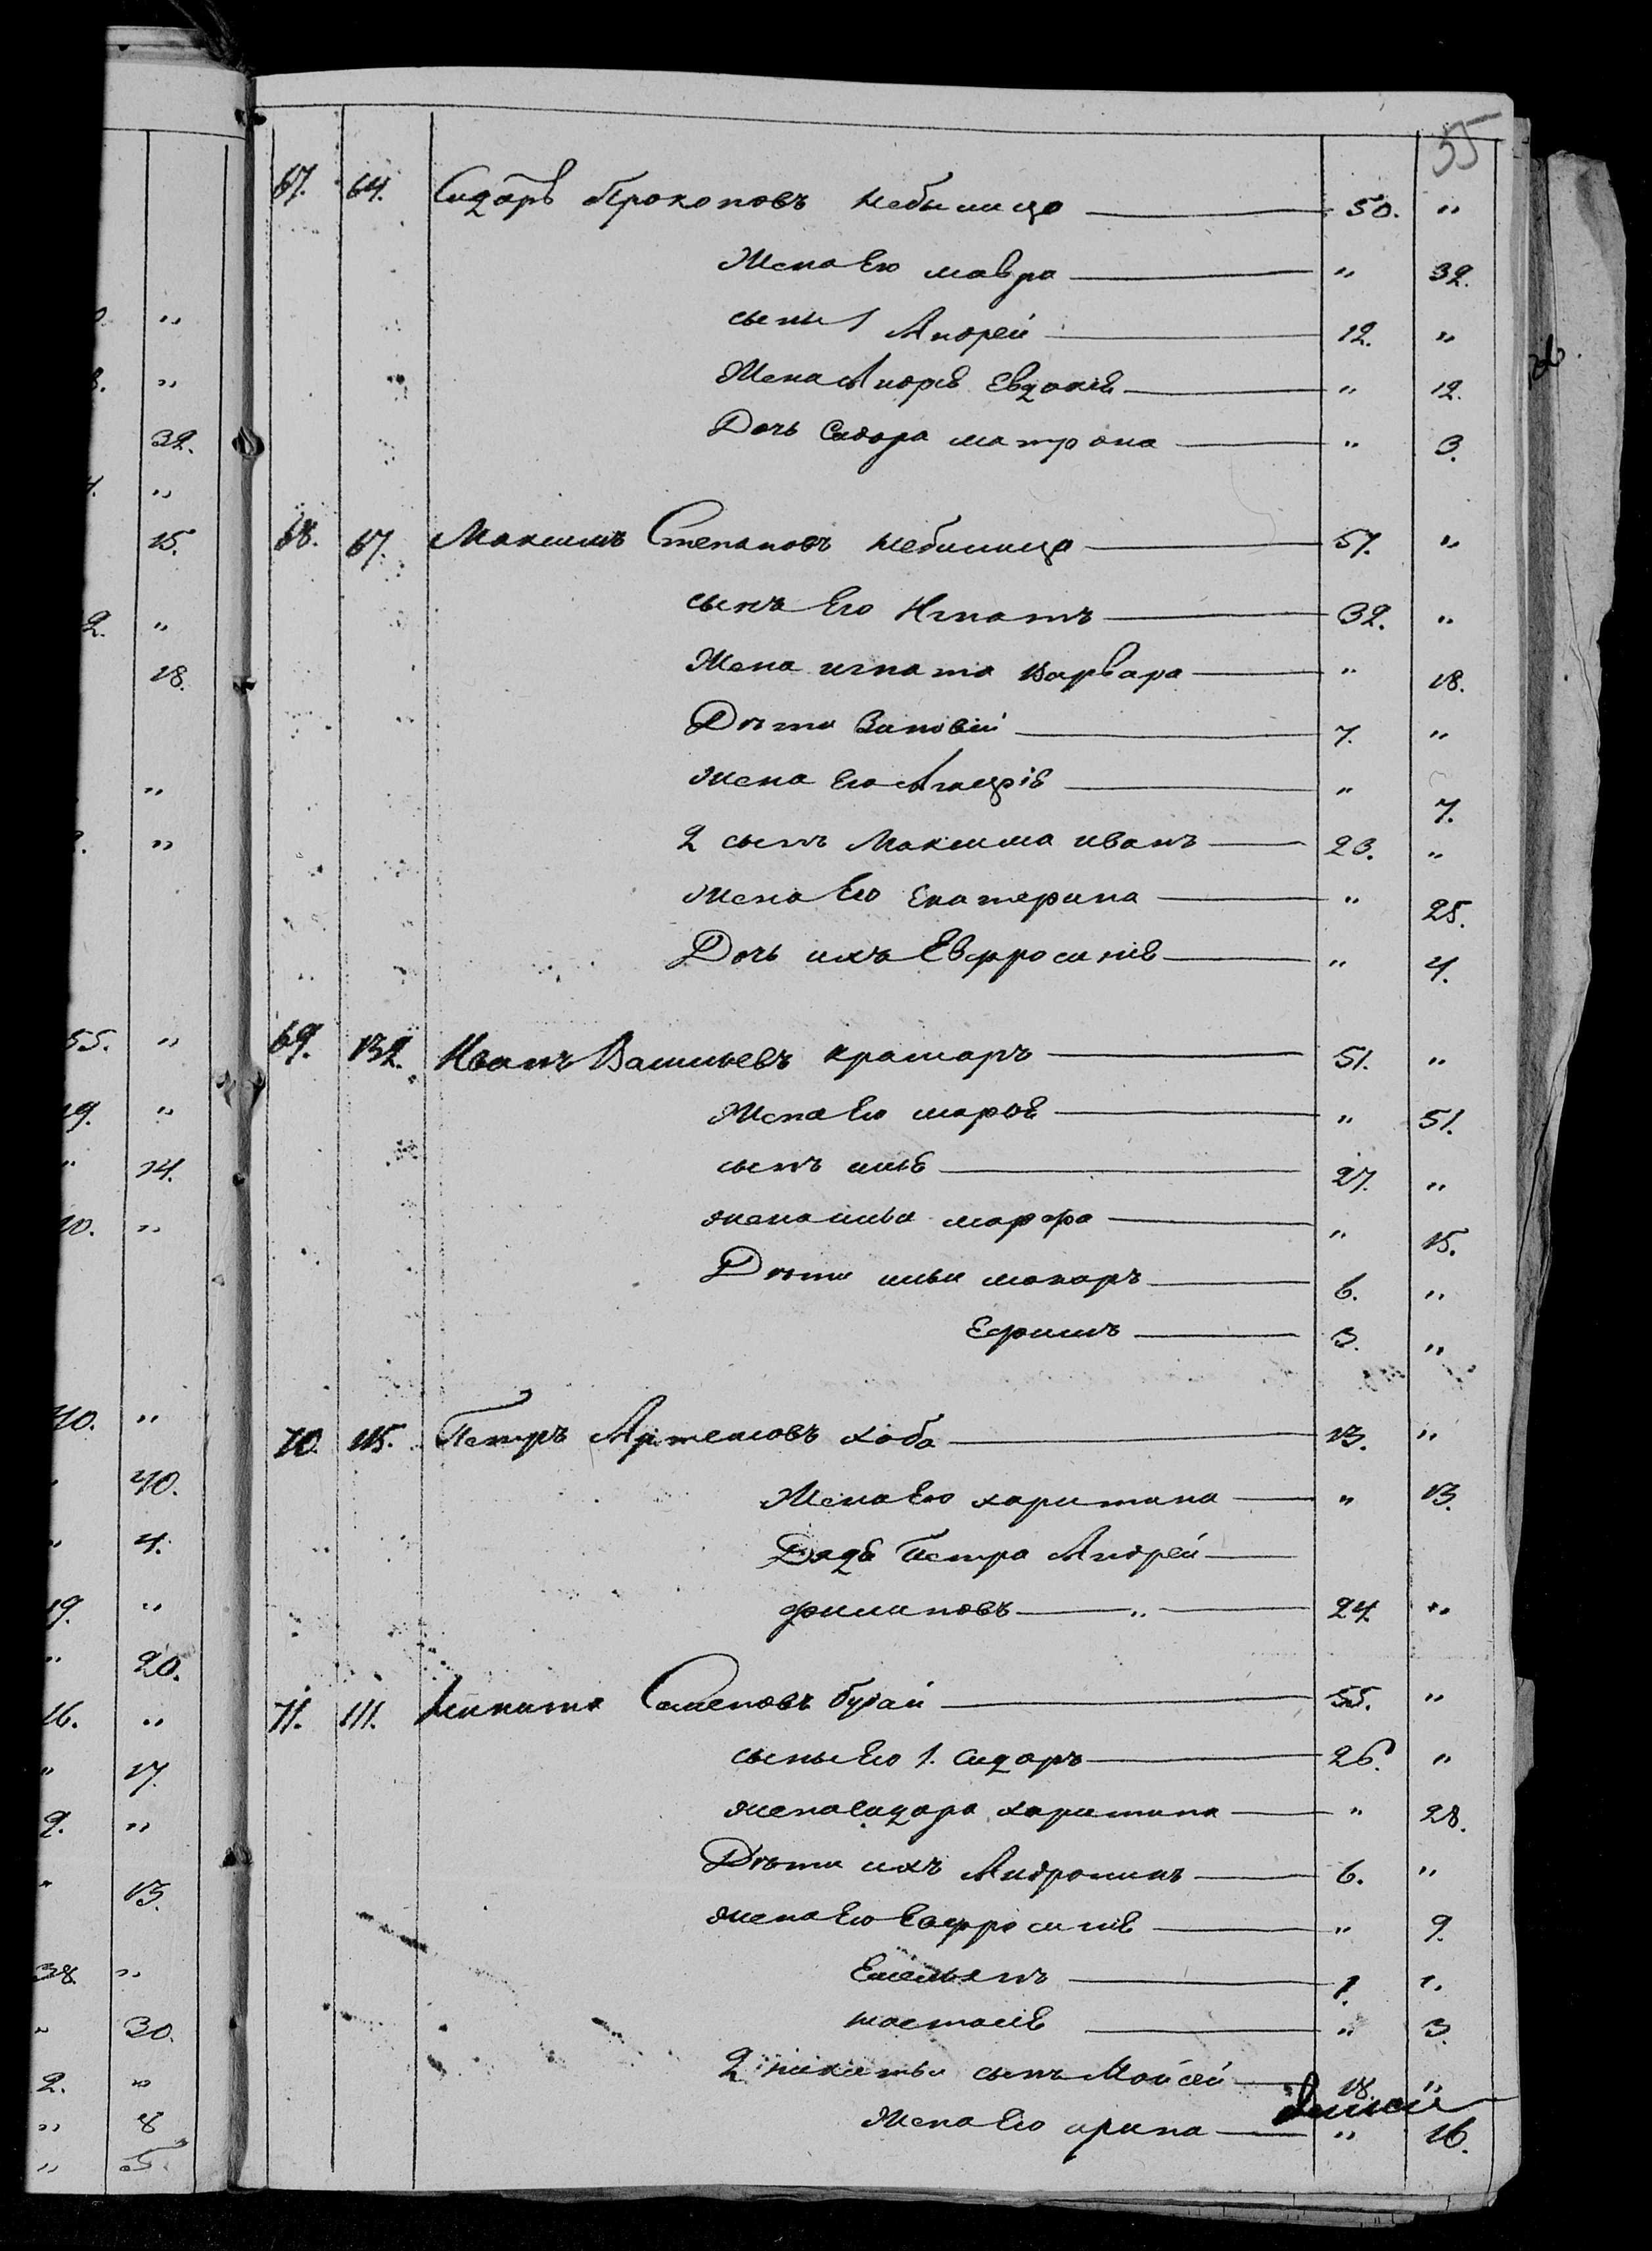 55
67. 64. Сидоръ Прокоповъ Небылица 50. "
Жена Его мавра " 32.
сыны 1 Андрей 12. "
Жена Андрея Евдокія " 12.
Дочь Сидора матрона " 3.
68. 67. Максимъ Степановъ небылица 57. "
сынъ Его Игнатъ 32. "
Жена игната Варвара " 18.
Дѣти Зиновій 7. "
жена Его " 7.
2 сынъ Максима иванъ 23. "
жена Его Екатерина " 25.
Дочь ихъ Евфросинія " 4.
69. 132. Иванъ Васильевъ крамаръ 51. "
Жена Его марія " 51.
сынъ илья 27. "
жена ильи марфа " 15.
Дѣти ильи макаръ 6. "
Ефимъ 3. "
70. 115. Петръ Артемовъ хоба 13. "
Жена Его харитина " 13.
Дядя Петра Андрей
филиповъ " 24 "
71. 111. Никита Семеновъ бугай 55. "
сыны Его 1. Сидоръ 26. "
жена сидора харитина " 28.
Дѣти ихъ Андроникъ 6. "
жена Его Евфросинія " 9.
Емельянъ 1. "
настасія " 3.
2 никиты сынъ Мойсей 18. "
Жена Его ирина " 16.